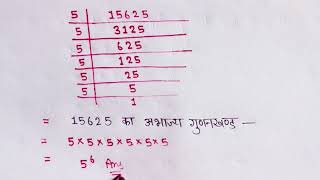 5 | 15625
5 | 3125
5 | 625
5 | 125
5 | 25
5 | 5
1
= 15625 का अभाज्य गुणनखण्ड —
= 5×5×5×5×5×5
= 5⁶ Ans